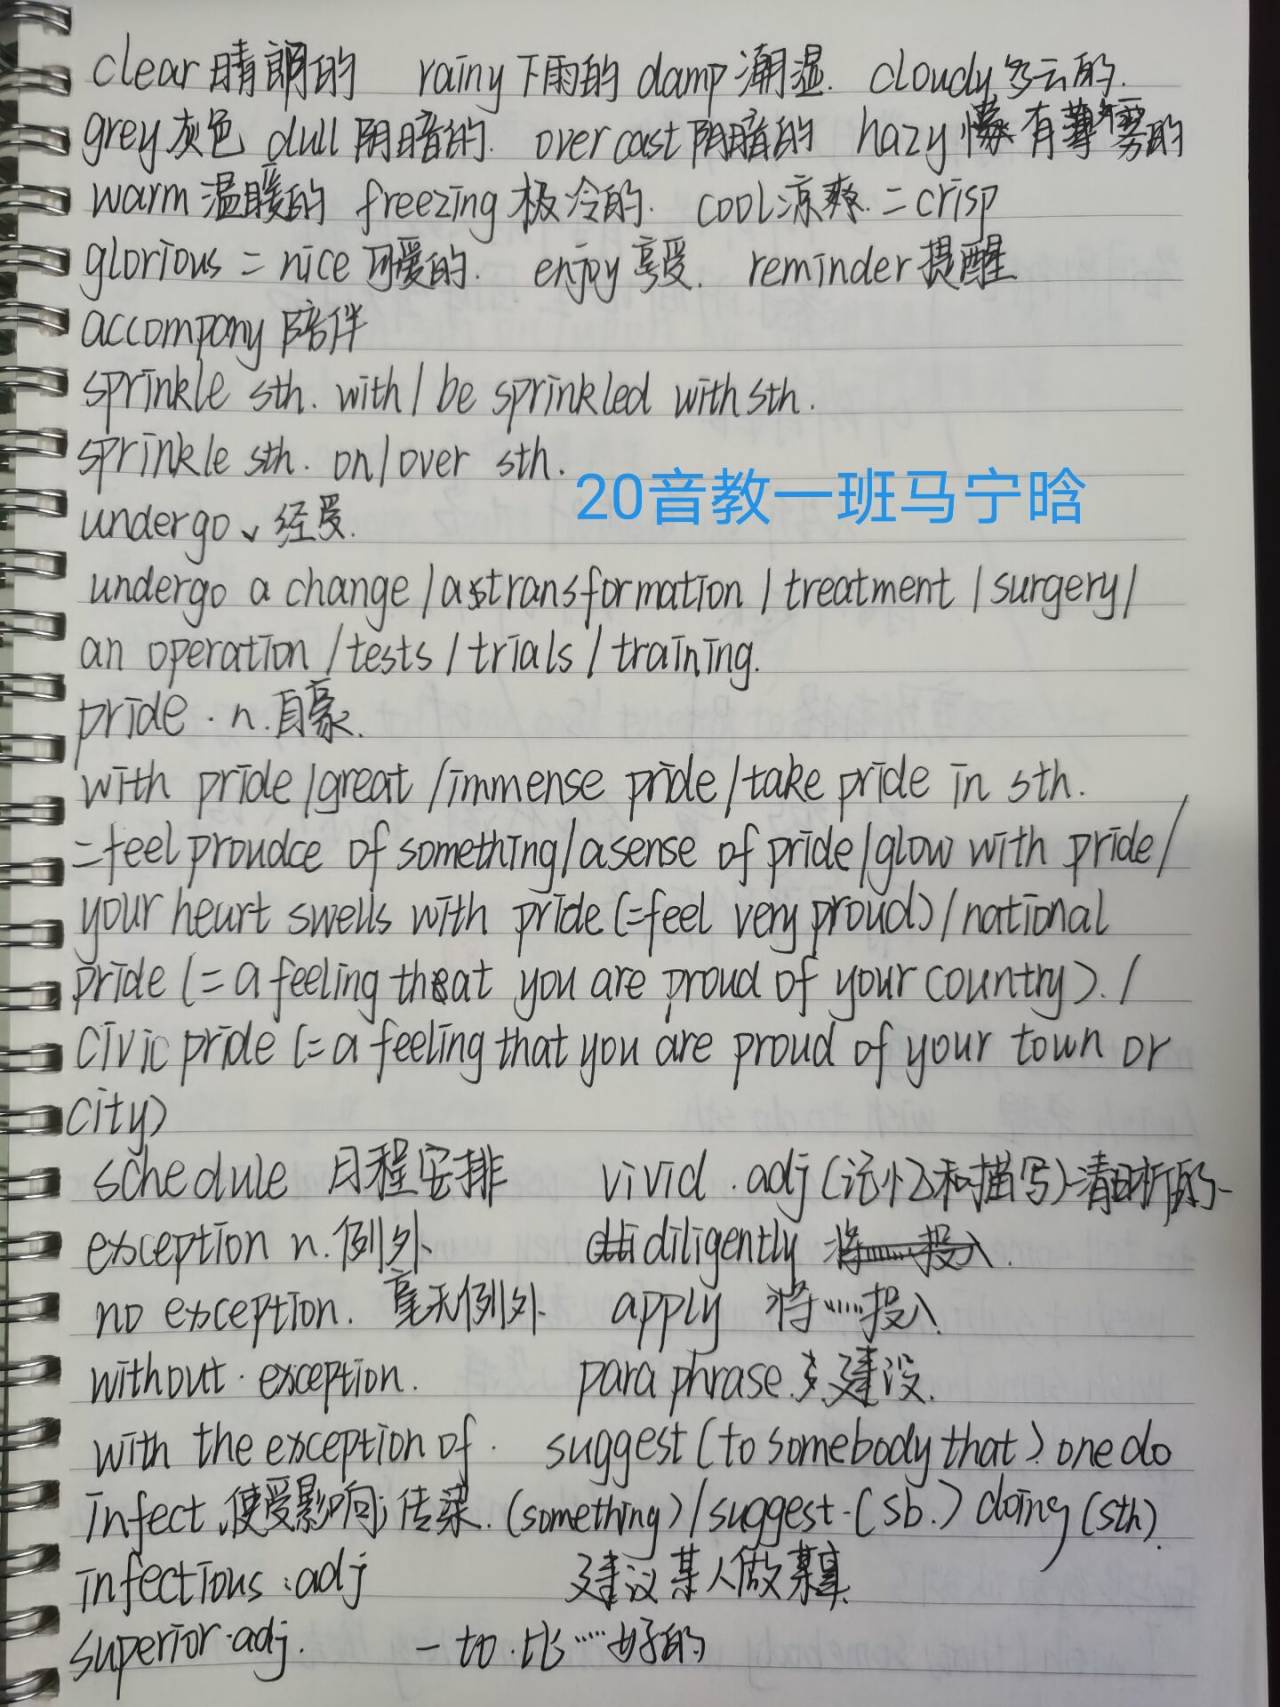 clear 晴朗的 rainy 下雨的 damp 潮湿. cloudy 多云的.
grey 灰色 dull 阴暗的. overcast 阴暗的 hazy 有薄雾的
warm 温暖的 freezing 极冷的. cool 凉爽. = crisp
glorious = nice 可爱的. enjoy 享受. reminder 提醒
accompany 陪伴
sprinkle sth. with / be sprinkled with sth.
sprinkle sth. on / over sth.
20音教一班马宁晗
undergo、经受.
undergo a change / a transformation / treatment / surgery /
an operation / tests / trials / training.
pride . n. 自豪.
with pride / great / immense pride / take pride in sth.
= feel proudce of something / a sense of pride / glow with pride /
your heart swells with pride (= feel very proud) / national
pride (= a feeling that you are proud of your country). /
civic pride (= a feeling that you are proud of your town or
city)
schedule 日程安排 vivid . adj (记忆和描写) 清晰的
exception n. 例外 diligently 将……投入.
no exception. 毫无例外. apply 将……投入.
without . exception. paraphrase. 建设.
with the exception of . suggest (to somebody that) one do
infect. 使受影响; 传染. (something) / suggest . (sb.) doing (sth).
infectious : adj 建议某人做某事.
superior . adj. — to . 比……好的